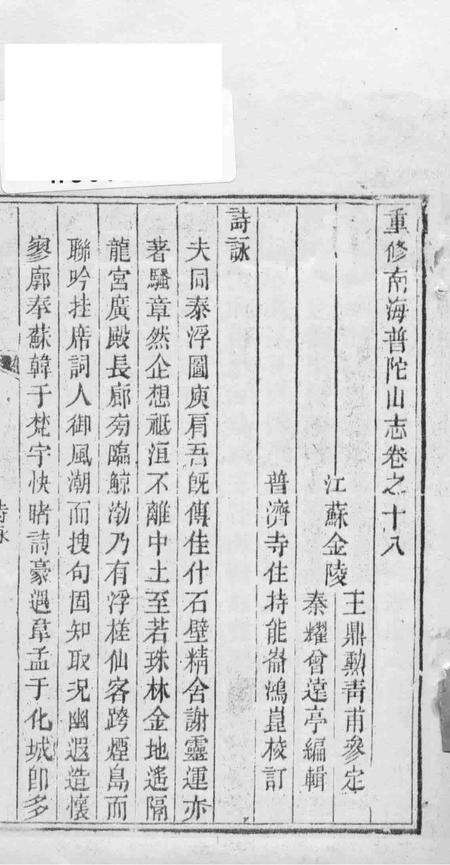 重修南海普陀山志卷之十八
王鼎勲青甫參定
江蘇金陵
秦耀曾遠亭編輯
普濟寺住持能崙鴻崑校訂
詩詠
夫同泰浮圖庾肩吾旣傳佳什石壁精舍謝靈運亦
著騷章然企想祗洹不離中土至若珠林金地遙隔
龍宮廣殿長廊旁臨鯨渤乃有浮槎仙客跨煙島而
聯吟挂席詞人御風潮而搜句固知取況幽遐造懷
寥廓奉蘇韓于梵宇快睹詩豪遇韋孟于化城卽多
詩詠